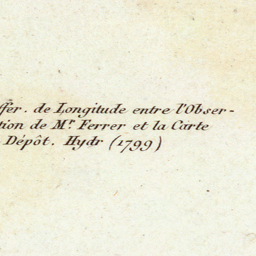 ffer. de Longitude entre l'Obser-
tion de Mr. Ferrer et la Carte
Dépôt. Hydr (1799)